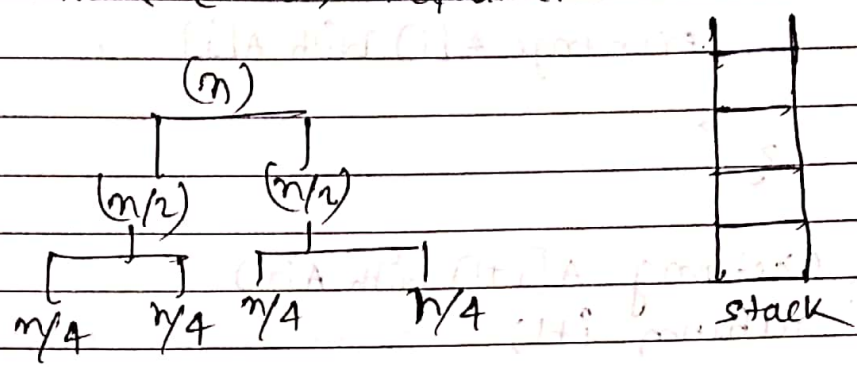 (n)
(n/2) (n/2)
n/4 n/4 n/4 n/4 stack